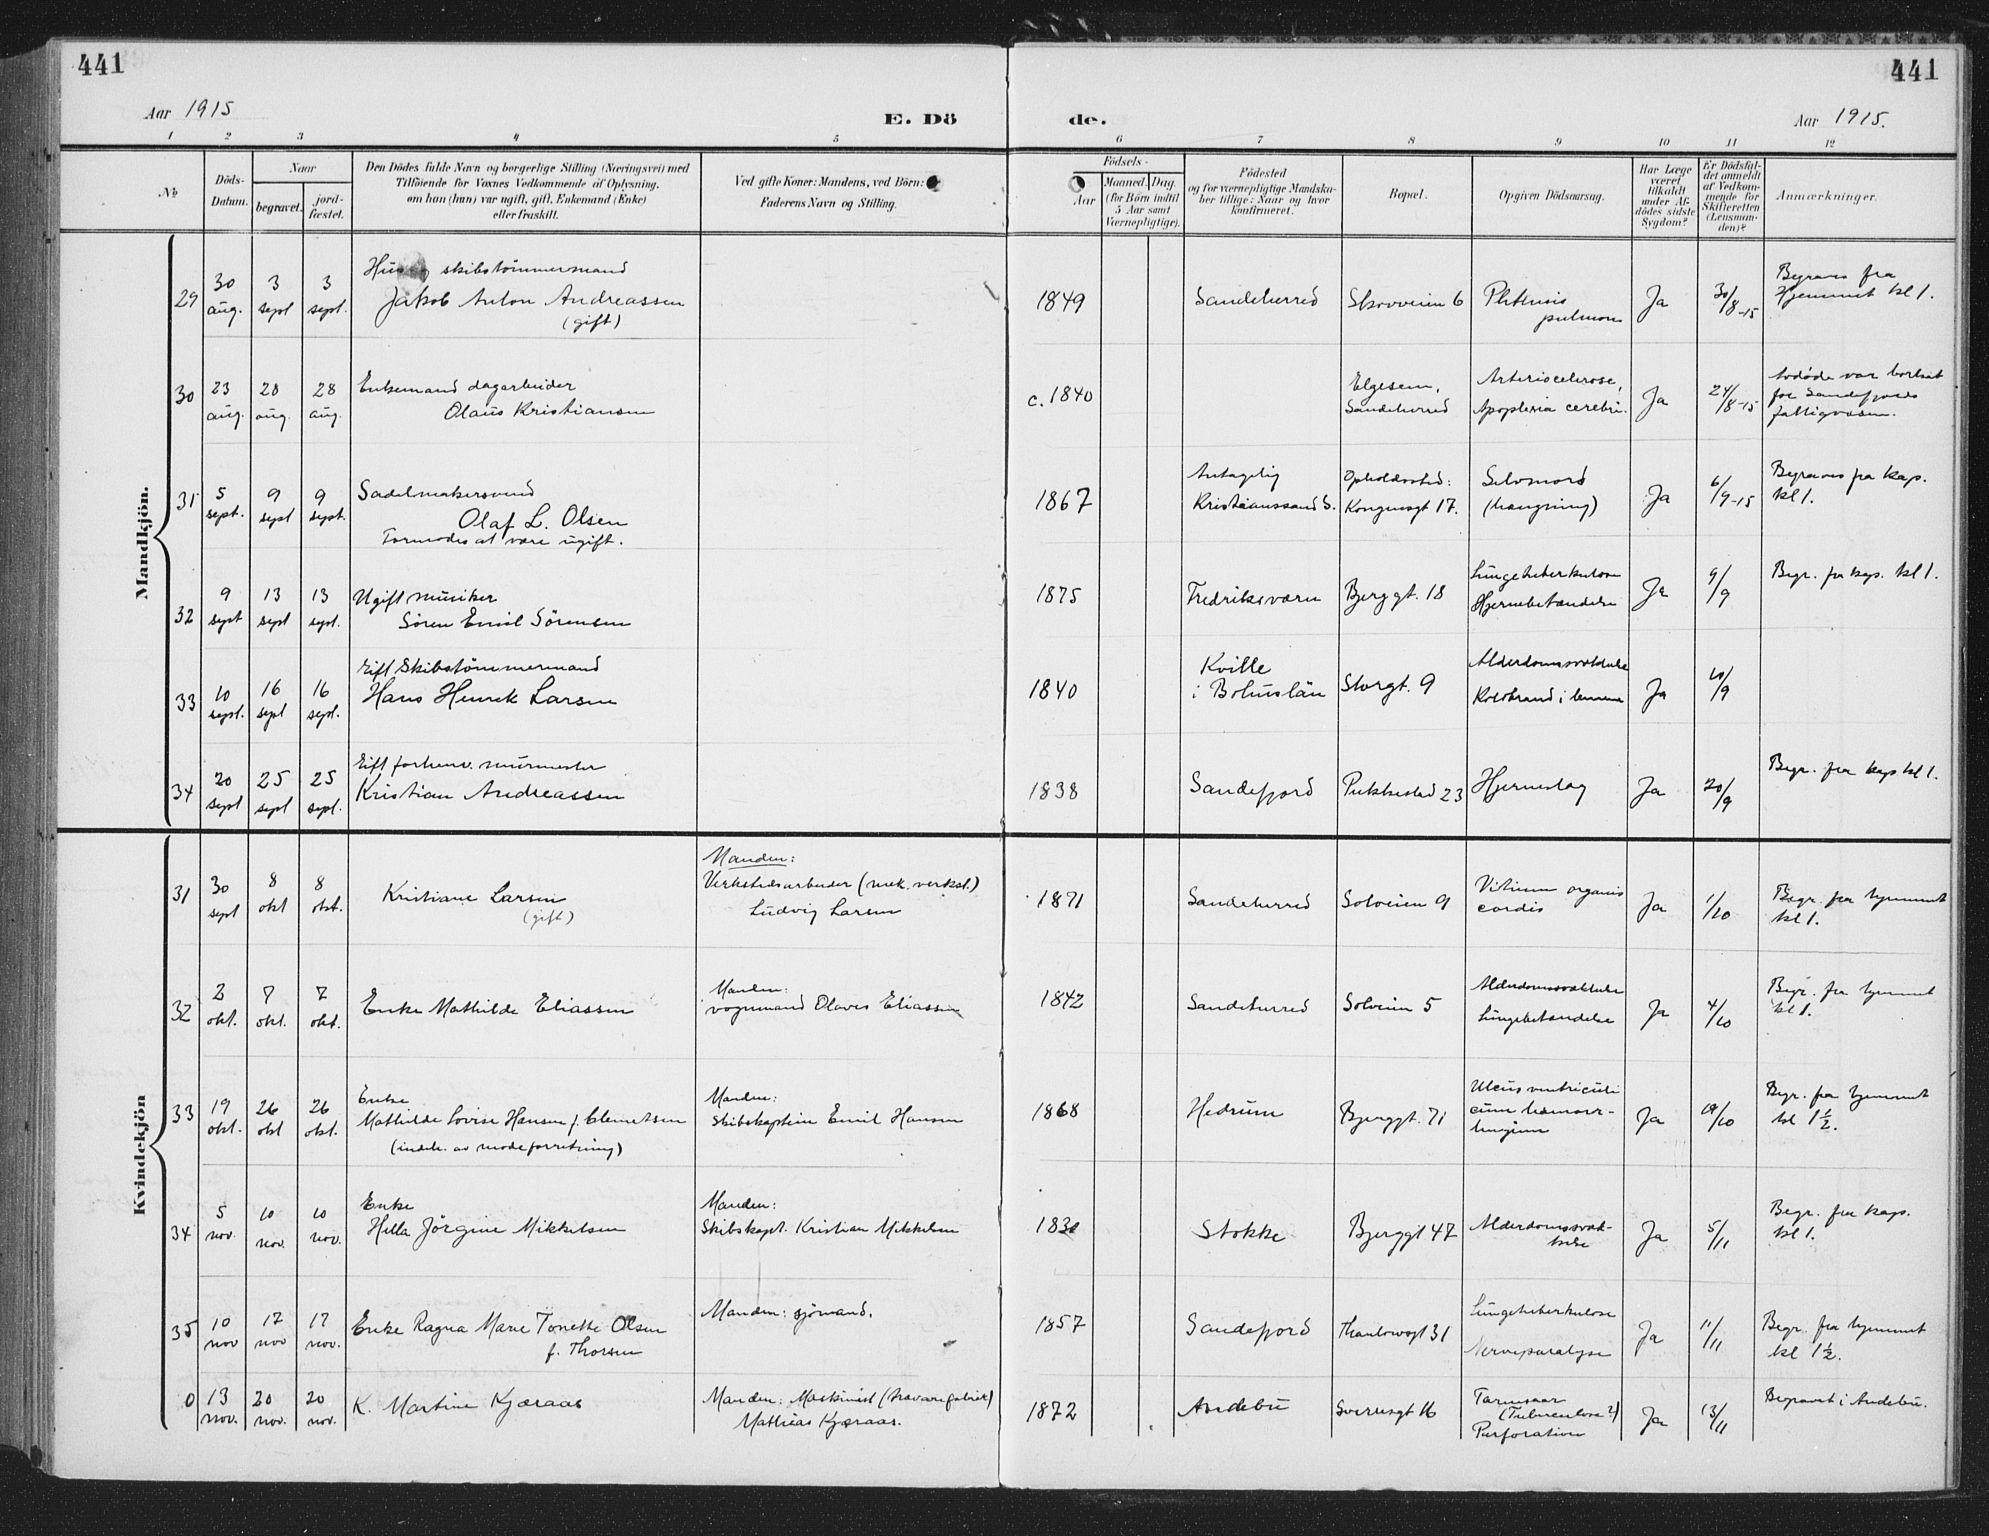 441
441
Aar 1915
E. Dö
de.
Aar 1915.
1 2 3 4 5 6 7 8 9 10 11 12
No
Döds-
Datum.
Naar
begravet.
jord-
fæstet.
Den Dödes fulde Navn og borgerlige Stilling (Næringsvei) med
Tilföiende for Voxnes Vedkommende af Oplysning,
om han (hun) var ugift, gift, Enkemand (Enke)
eller fraskilt.
Ved gifte Koner: Mandens, ved Börn:
Faderens Navn og Stilling.
Födsels-
Aar
Maaned.
Dag.
(for Börn indtil
5 Aar samt
Værnepligtige).
Födested
og for værnepligtige Mandska-
ber tillige: Naar og hvor
konfirmeret.
Bopæl.
Opgiven Dödsaarsag.
Har Læge
været
tilkaldt
under Af-
dödes sidste
Sygdom?
Er Dödsfal-
det anmeldt
af Vedkom-
mende for
Skifteretten
(Lensman-
den)?
Anmærkninger.
Mandkjön.
29
30 aug.
3 sept
3 sept.
skibstömmermand
Jakob Anton Andreassen
(gift)
1849
Sandeherred
Skovveien 6
Phthisis
pulmon
Ja
30/8-15
Begraves fra
Hjemmet kl 1.
30
23 aug.
28 aug.
28 aug.
Enkemand dagarbeider
Olaus Kristiansen
c. 1840
Elgesem,
Sandeherred
Arteriosclerose,
Apoplexia cerebri.
Ja
24/8-15
Avdøde var bortsat
for Sandefjords
fattigvæsen.
31
5 sept.
9 sept
9 sept.
Sadelmakersvend
Olaf L. Olsen
Formodes at være ugift.
1867
Antagelig
Kristianssand S.
Opholdssted:
Kongensgt 17.
Selvmord
(hængning)
Ja
6/9-15
Begraves fra kap.
kl 1.
32
9 sept
13 sept
13 sept.
Ugift musiker
Sören Emil Sörensen
1875
Fredriksværn
Bjerggt. 18
Lungetuberkulose
Hjernebetændelse
Ja
9/9
Begr. fra kap. kl 1.
33
10 sept.
16 sept
16 sept.
Gift Skibstömmermand
Hans Henrik Larsen
1840
Kville
i Bohuslän
Storgt. 9
Alderdomssvakkelse
Koldbrand i benene
Ja
10/9
34
20 sept
25 sept
25 sept.
Gift forhenv. murmester
Kristian Andreassen
1838
Sandefjord
Pukkestad 23
Hjerneslag
Ja
20/9
Begr. fra kap kl 1.
Kvindekjön
31
30 sept
8 okt
8 okt.
Kristiane Larsen
(gift)
Manden:
Verkstedsarbeider (mek. verkst.)
Ludvig Larsen
1871
Sandeherred
Solveien 9
Vitium organis
cordis
Ja
1/10
Begr. fra hjemmet
kl 1.
32
2 okt.
7 okt.
7 okt.
Enke Mathilde Eliassen
Manden:
vognmand Olaves Eliassen
1842
Sandeherred
Solveien 5
Alderdomssvakkelse
Lungebetændelse
Ja
4/10
Begr. fra hjemmet
kl 1.
33
19 okt.
26 okt
26 okt.
Enke
Mathilde Lovise Hansen f. Clemetsen
(indeh. av modeforretning)
Manden:
Skibskaptein Emil Hansen
1868
Hedrum
Bjerggt. 71
Ulcus ventriculi
cum hæmorr-
hagium
Ja
19/10
Begr. fra hjemmet
kl 1½.
34
5 nov.
10 nov.
10 nov.
Enke
Hella Jörgine Mikkelsen
Manden:
Skibskapt. Kristian Mikkelsen
Stokke
Bjerggt 47
Alderdomssvak-
kelse
Ja
5/11
Begr. fra kap.
kl 1.
35
10 nov
17 nov
17 nov.
Enke Ragna Marie Tonette Olsen
f. Thorsen
Manden: sjömand.
1857
Sandefjord
Thaulowsgt 31
Lungetuberkulose
Nerveparalyse
Ja
11/11
Begr. fra hjemmet
kl 1½.
0
13 nov.
20 nov.
20 nov.
K. Martine Kjæraas
Manden: Maskinist (trævarefabrik)
Mathias Kjæraas.
1872
Andebu
Sverresgt 16
Tarmsaar
(Tuberculose?)
Perforation
Ja
13/11
Begravet i Andebu.